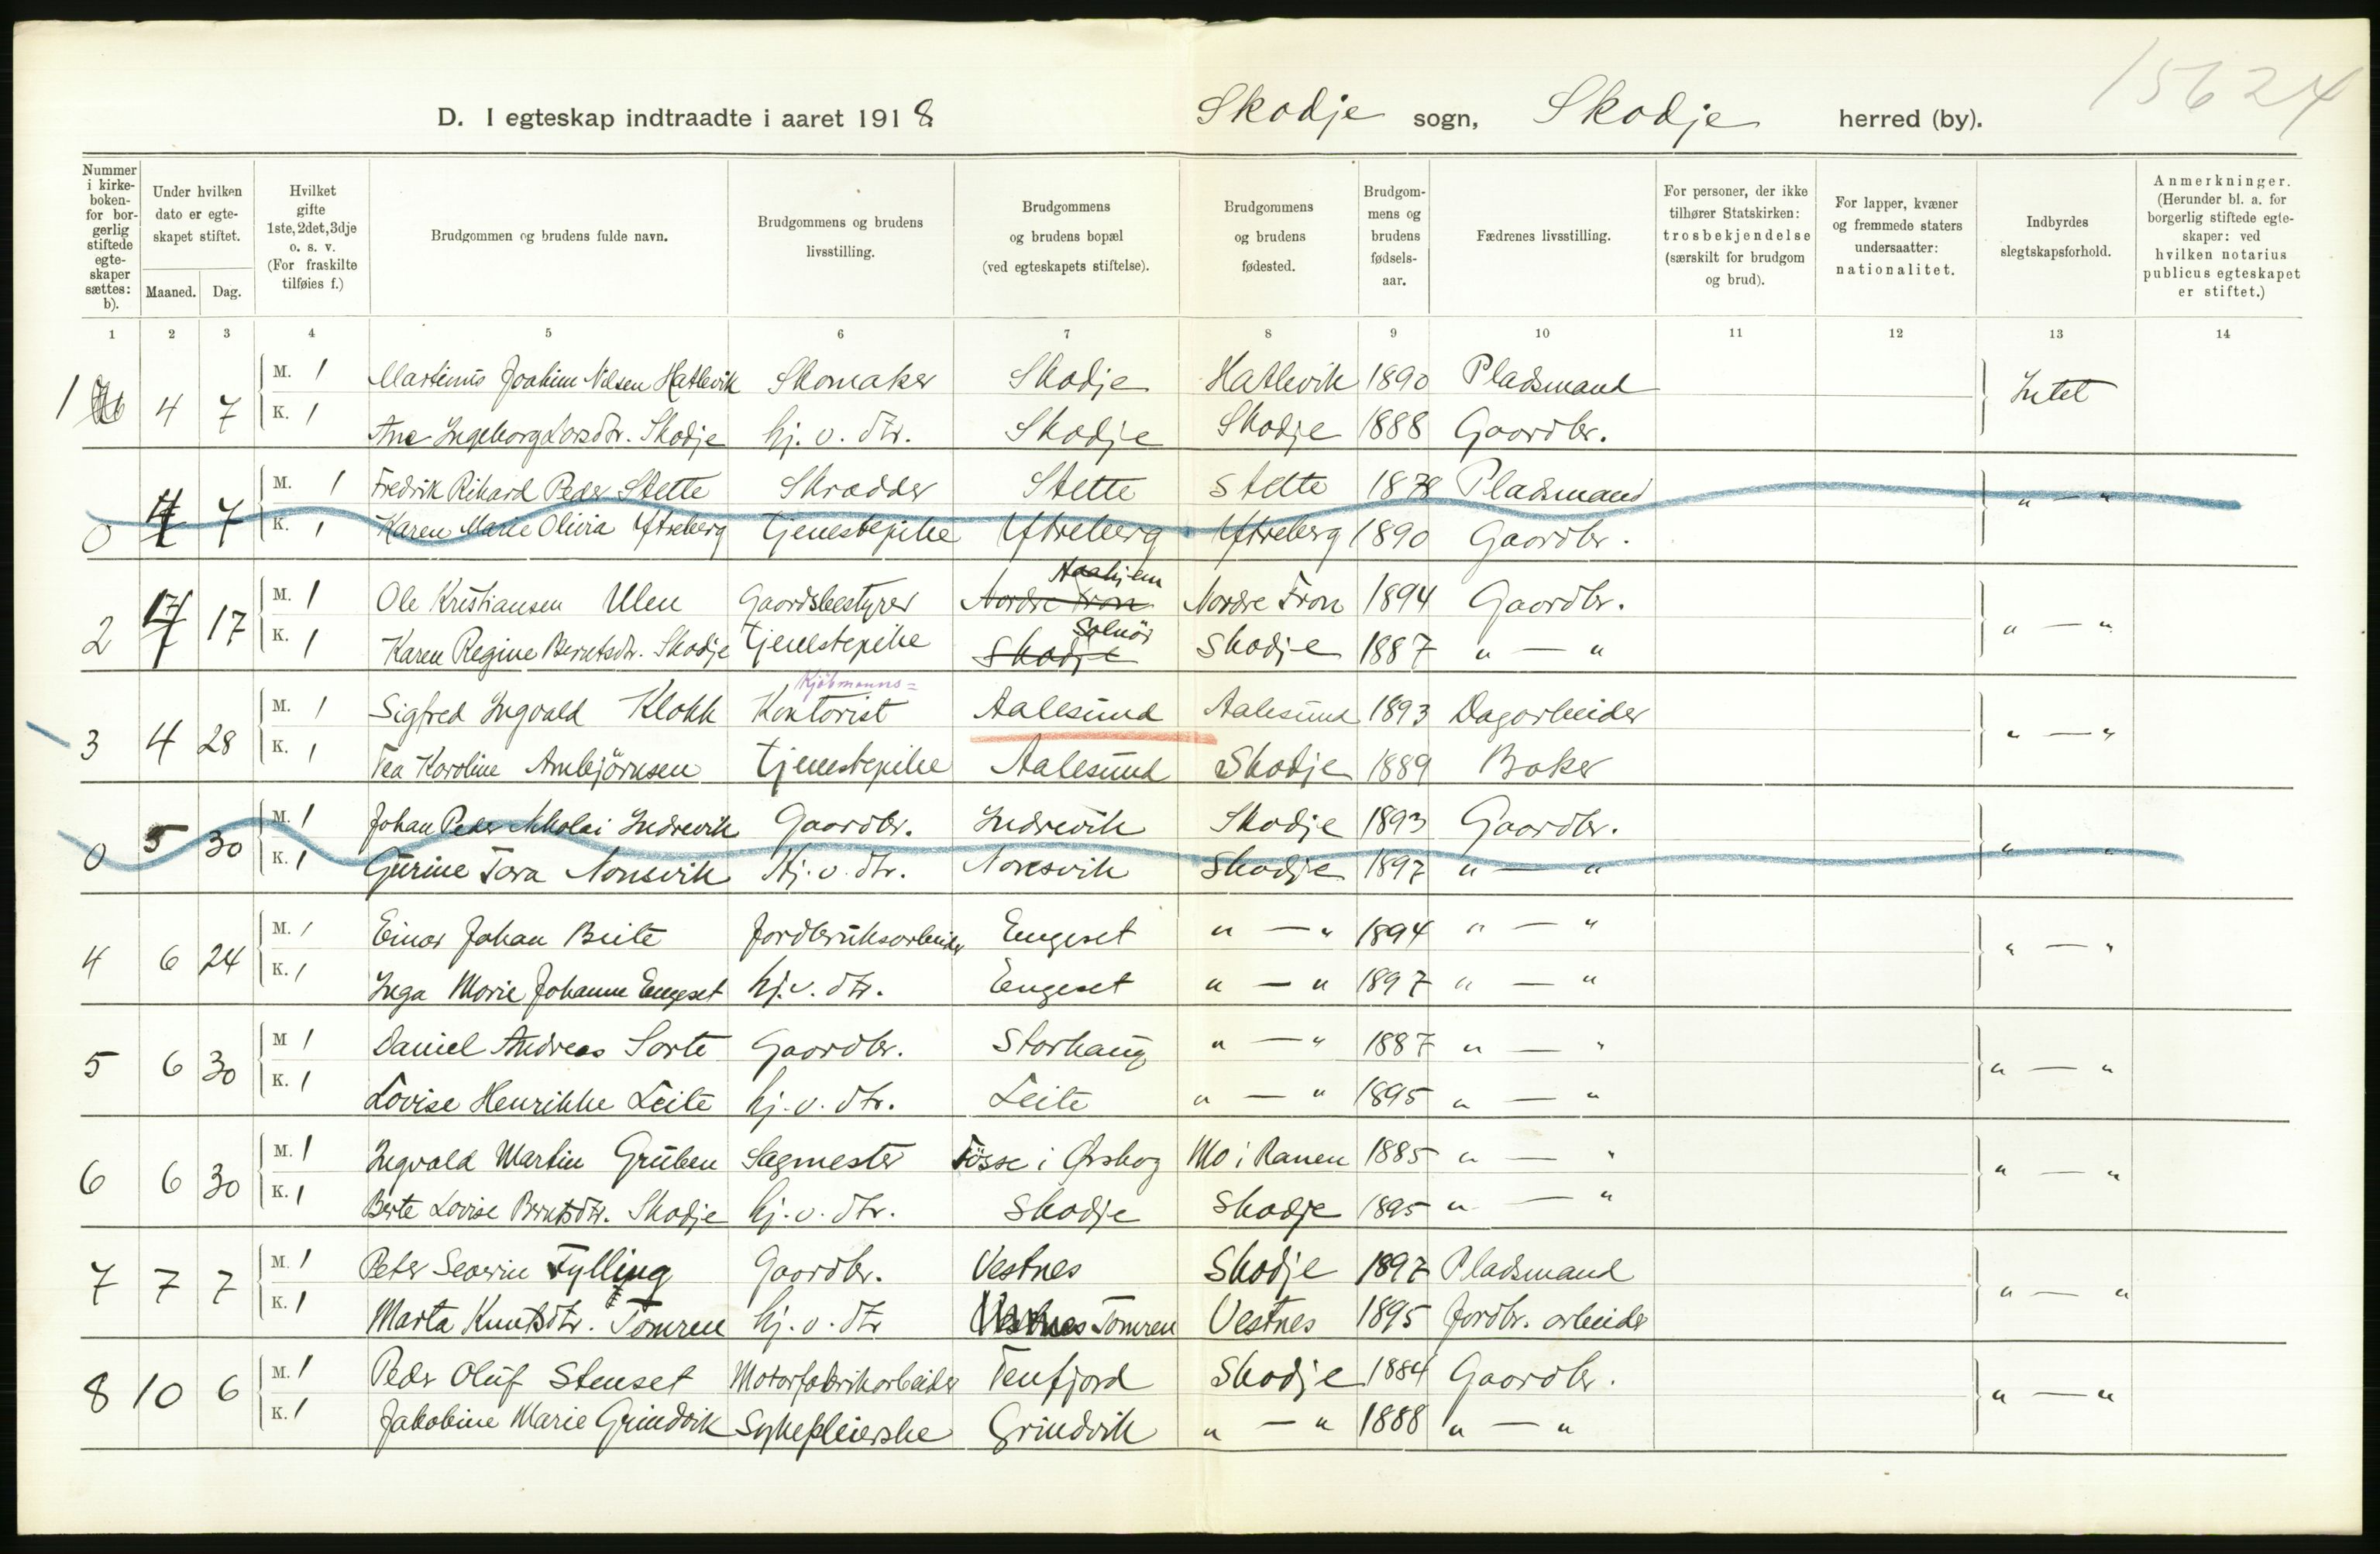 15624
D. I egteskap indtraadte i aaret 1918 Skodje sogn, Skodje herred (by).
Nummer i kirke-boken- for bor-gerlig stiftede egte-skaper sættes: b).
Under hvilken dato er egte-skapet stiftet.
Maaned. Dag.
Hvilket gifte 1ste, 2det, 3dje o. s. v. (For fraskilte tilføies f.)
Brudgommen og brudens fulde navn.
Brudgommens og brudens livsstilling.
Brudgommens og brudens bopæl (ved egteskapets stiftelse).
Brudgommens og brudens fødested.
Brudgom-mens og brudens fødsels-aar.
Fædrenes livsstilling.
For personer, der ikke tilhører Statskirken: trosbekjendelse (særskilt for brudgom og brud).
For lapper, kvæner og fremmede staters undersaatter: nationalitet.
Indbyrdes slegtskapsforhold.
Anmerkninger. (Herunder bl. a. for borgerlig stiftede egte-skaper: ved hvilken notarius publicus egteskapet er stiftet.)
1 2 3 4 5 6 7 8 9 10 11 12 13 14
1 4 7 M. 1 Martinus Joakim Nilsen Hatlevik Skomaker Skodje Hatlevik 1890 Pladsmand Intet
K. 1 Ane Ingeborg Larsdtr. Skodje hj. v. dtr. Skodje Skodje 1888 Gaardbr.
0 4 7 M. 1 Fredrik Rikard Peder Stette Skrædder Stette Stette 1878 Pladsmand " — "
K. 1 Karen Marie Olivia Yttreberg Tjenestepike Yttreberg Yttreberg 1890 Gaardbr.
2 4 17 M. 1 Ole Kristiansen Ulen Gaardsbestyrer Nordre Fron Aaahjem Nordre Fron 1894 Gaardbr. " — "
K. 1 Karen Regine Berntsdtr. Skodje Tjenestepike Skodje Solnör Skodje 1887 " — "
3 4 28 M. 1 Sigfred Ingvald Klokk Kjöbmanns= Kontorist Aalesund Aalesund 1893 Dagarbeider " — "
K. 1 Tea Karoline Arnbjörnsen Tjenestepike Aalesund Skodje 1889 Baker
0 5 30 M. 1 Johan Peder Nikolai Indrevik Gaardbr. Indrevik Skodje 1893 Gaardbr. " — "
K. 1 Gurine Tora Nonsvik Hj. v. dtr. Nonsvik Skodje 1897 " — "
4 6 24 M. 1 Einar Johan Beite Jordbruksarbeider Engeset " — " 1894 " — " " — "
K. 1 Inga Marie Johanne Engeset hj. v. dtr. Engeset " — " 1897 " — "
5 6 30 M 1 Daniel Andreas Sorte Gaardbr. Storhaug " — " 1887 " — " " — "
K. 1 Lovise Henrikke Leite hj. v. dtr. Leite " — " 1895 " — "
6 6 30 M. 1 Ingvald Martin Gruben Sagmester Fösse i Ørskog Mo i Ranen 1885 " — " " — "
K. 1 Berte Lovise Berntsdtr. Skodje hj. v. dtr. Skodje Skodje 1895 " — "
7 7 7 M. 1 Peter Severin Fylling Gaardbr. Vestnes Skodje 1897 Pladsmand " — "
K. 1 Marta Knutsdtr. Tomren hj. v. dtr Vestnes Tomren Vestnes 1895 Jordbr. arbeider
8 10 6 M. 1 Peder Oluf Stenset Motorfabrikarbeider Tenfjord Skodje 1884 Gaardbr. " — "
K. 1 Jakobine Marie Grindvik Sykepleierske Grindvik " — " 1888 " — "